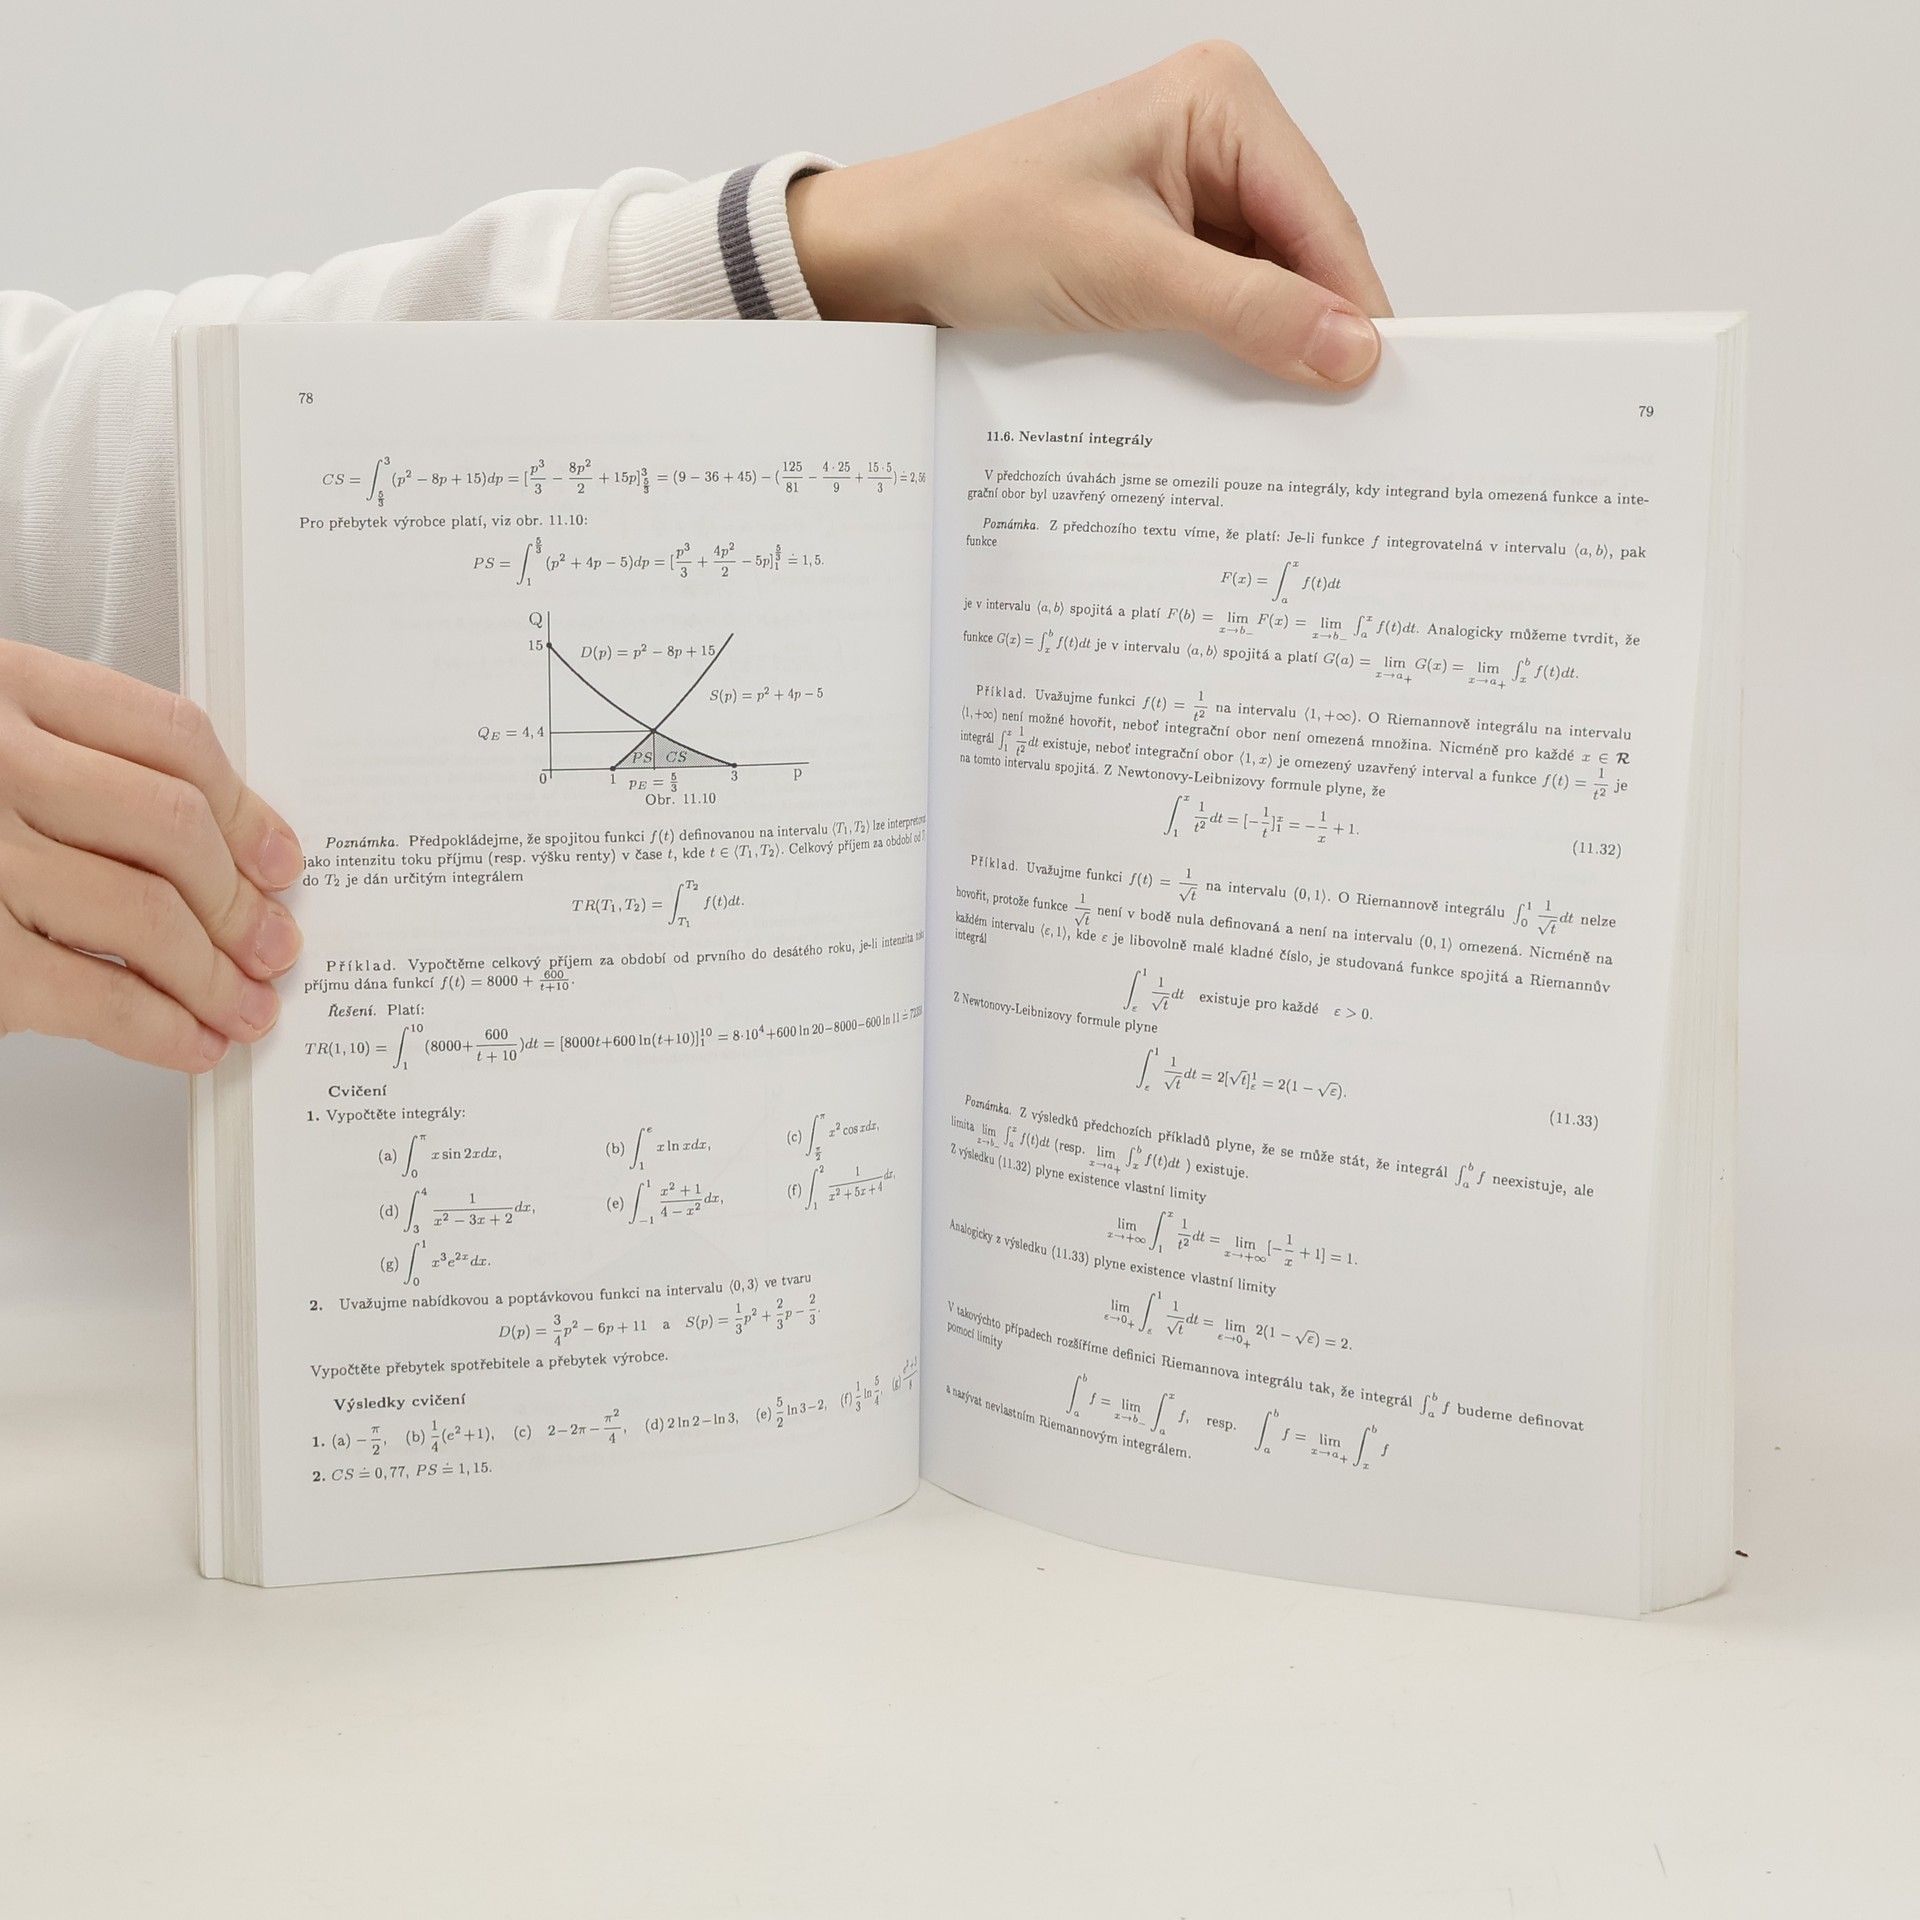 78
CS = ∫_{5/3}^{3} (p² − 8p + 15)dp = [p³/3 − 8p²/2 + 15p]_{5/3}^{3} = (9 − 36 + 45) − (125/81 − 4·25/9 + 15·5/3) ≐ 2,56
Pro přebytek výrobce platí, viz obr. 11.10:
PS = ∫_{1}^{5/3} (p² + 4p − 5)dp = [p³/3 + 4p²/2 − 5p]_{1}^{5/3} ≐ 1,5.
Q
15
D(p) = p² − 8p + 15
S(p) = p² + 4p − 5
Q_E = 4,4
PS CS
0 1 p_E = 5/3 3 p
Obr. 11.10
Poznámka. Předpokládejme, že spojitou funkci f(t) definovanou na intervalu ⟨T₁, T₂⟩ lze
jako intenzitu toku příjmu (resp. výšku renty) v čase t, kde t ∈ ⟨T₁, T₂⟩. Celkový příjem za období od
do T₂ je dán určitým integrálem
TR(T₁, T₂) = ∫_{T₁}^{T₂} f(t)dt.
Příklad. Vypočtěme celkový příjem za období od prvního do desátého roku, je-li intenzita
příjmu dána funkcí f(t) = 8000 + 600/(t+10).
Řešení. Platí:
TR(1, 10) = ∫_{1}^{10} (8000 + 600/(t + 10))dt = [8000t+600 ln(t+10)]_{1}^{10} = 8·10⁴+600 ln 20−8000−600 ln 11 ≐
Cvičení
1. Vypočtěte integrály:
(a) ∫_{0}^{π} x sin 2xdx, (b) ∫_{1}^{e} x ln xdx, (c) ∫_{π/2}^{π} x² cos xdx,
(d) ∫_{3}^{4} 1/(x² − 3x + 2) dx, (e) ∫_{−1}^{1} (x² + 1)/(4 − x²) dx, (f) ∫_{1}^{2} 1/(x² + 5x + 4) dx,
(g) ∫_{0}^{1} x³e^{2x}dx.
2. Uvažujme nabídkovou a poptávkovou funkci na intervalu ⟨0, 3⟩ ve tvaru
D(p) = 3/4 p² − 6p + 11 a S(p) = 1/3 p² + 2/3 p − 2/3.
Vypočtěte přebytek spotřebitele a přebytek výrobce.
Výsledky cvičení
1. (a) −π/2, (b) 1/4(e²+1), (c) 2−2π−π²/4, (d) 2 ln 2−ln 3, (e) 5/2 ln 3−2, (f) 1/3 ln 5/4, (g)
2. CS ≐ 0,77, PS ≐ 1,15.
79
11.6. Nevlastní integrály
V předchozích úvahách jsme se omezili pouze na integrály, kdy integrand byla omezená funkce a inte-
grační obor byl uzavřený omezený interval.
Poznámka. Z předchozího textu víme, že platí: Je-li funkce f integrovatelná v intervalu ⟨a, b⟩, pak
funkce
F(x) = ∫_{a}^{x} f(t)dt
je v intervalu ⟨a, b⟩ spojitá a platí F(b) = lim_{x→b₋} F(x) = lim_{x→b₋} ∫_{a}^{x} f(t)dt. Analogicky můžeme tvrdit, že
funkce G(x) = ∫_{x}^{b} f(t)dt je v intervalu ⟨a, b⟩ spojitá a platí G(a) = lim_{x→a₊} G(x) = lim_{x→a₊} ∫_{x}^{b} f(t)dt.
Příklad. Uvažujme funkci f(t) = 1/t² na intervalu ⟨1, +∞). O Riemannově integrálu na intervalu
⟨1, +∞) není možné hovořit, neboť integrační obor není omezená množina. Nicméně pro každé x ∈ R
integrál ∫_{1}^{x} 1/t² dt existuje, neboť integrační obor ⟨1, x⟩ je omezený uzavřený interval a funkce f(t) = 1/t² je
na tomto intervalu spojitá. Z Newtonovy-Leibnizovy formule plyne, že
∫_{1}^{x} 1/t² dt = [−1/t]_{1}^{x} = −1/x + 1.
(11.32)
Příklad. Uvažujme funkci f(t) = 1/√t na intervalu (0, 1⟩. O Riemannově integrálu ∫_{0}^{1} 1/√t dt nelze
hovořit, protože funkce 1/√t není v bodě nula definovaná a není na intervalu (0, 1⟩ omezená. Nicméně na
každém intervalu ⟨ε, 1⟩, kde ε je libovolně malé kladné číslo, je studovaná funkce spojitá a Riemannův
integrál
∫_{ε}^{1} 1/√t dt existuje pro každé ε > 0.
Z Newtonovy-Leibnizovy formule plyne
∫_{ε}^{1} 1/√t dt = 2[√t]_{ε}^{1} = 2(1 − √ε).
(11.33)
Poznámka. Z výsledků předchozích příkladů plyne, že se může stát, že integrál ∫_{a}^{b} f neexistuje, ale
limita lim_{x→b₋} ∫_{a}^{x} f(t)dt (resp. lim_{x→a₊} ∫_{x}^{b} f(t)dt ) existuje.
Z výsledku (11.32) plyne existence vlastní limity
lim_{x→+∞} ∫_{1}^{x} 1/t² dt = lim_{x→+∞} [−1/x + 1] = 1.
Analogicky z výsledku (11.33) plyne existence vlastní limity
lim_{ε→0₊} ∫_{ε}^{1} 1/√t dt = lim_{ε→0₊} 2(1 − √ε) = 2.
V takovýchto případech rozšíříme definici Riemannova integrálu tak, že integrál ∫_{a}^{b} f budeme definovat
pomocí limity
∫_{a}^{b} f = lim_{x→b₋} ∫_{a}^{x} f, resp. ∫_{a}^{b} f = lim_{x→a₊} ∫_{x}^{b} f
a nazývat nevlastním Riemannovým integrálem.